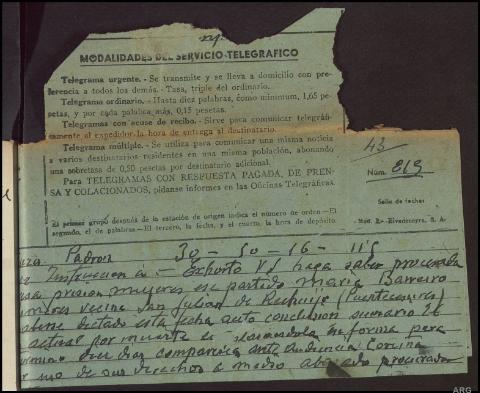 MODALIDADES DEL SERVICIO TELEGRÁFICO
Telegrama urgente. - Se transmite y se lleva a domicilio con pre-
ferencia a todos los demás. - Tasa, triple del ordinario.
Telegrama ordinario. - Hasta diez palabras, como mínimum, 1,65 pe-
setas, y por cada palabra más, 0,15 pesetas.
Telegramas con acuse de recibo. - Sirve para comunicar telegráfi-
camente al expedidor la hora de entrega al destinatario.
Telegrama múltiple. - Se utiliza para comunicar una misma noticia
a varios destinatarios residentes en una misma población, abonando
una sobretasa de 0,50 pesetas por destinatario adicional.
Para TELEGRAMAS CON RESPUESTA PAGADA, DE PREN-
SA Y COLACIONADOS, pídanse informes en las Oficinas Telegráficas.
43
Núm. 813
Sello de fechas
El primer grupo después de la estación de origen indica el número de orden.-El
segundo, el de palabras.-El tercero, la fecha, y el cuarto, la hora de depósito.
Rivadeneyra, S. A.
Padron 30 - 50 - 16 - 115
Instruccion a :- Exhorto VS haga saber procesada
prision mujeres ese partido Maria Barreiro
vecina San Julian de
dictado esta fecha auto conclusion sumario 26
actual por muerte emplazandola en forma para
diez dias comparezca ante Audiencia Coruña
uso de sus derechos a medio abogado procurador
ARG